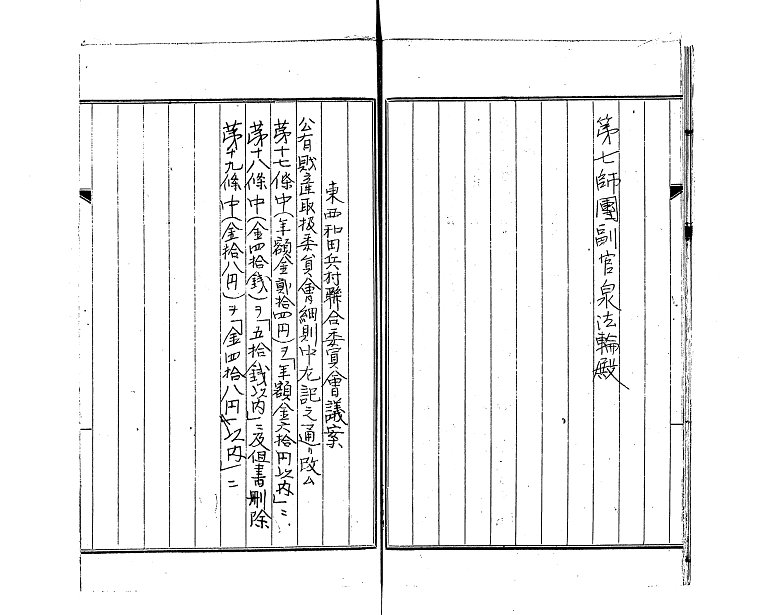 第七師團副官泉法輪殿
東西和田兵村聯合委員會議案
公有財産取扱委員會細則中左記之通リ改ム
第十七條中(年額金貳拾四円)ヲ「年額金六拾円以内」ニ
第十八條中(金四拾銭)ヲ「五拾銭以内」ニ及但書削除
第十九條中(金拾八円)ヲ「金四拾八円以内」ニ